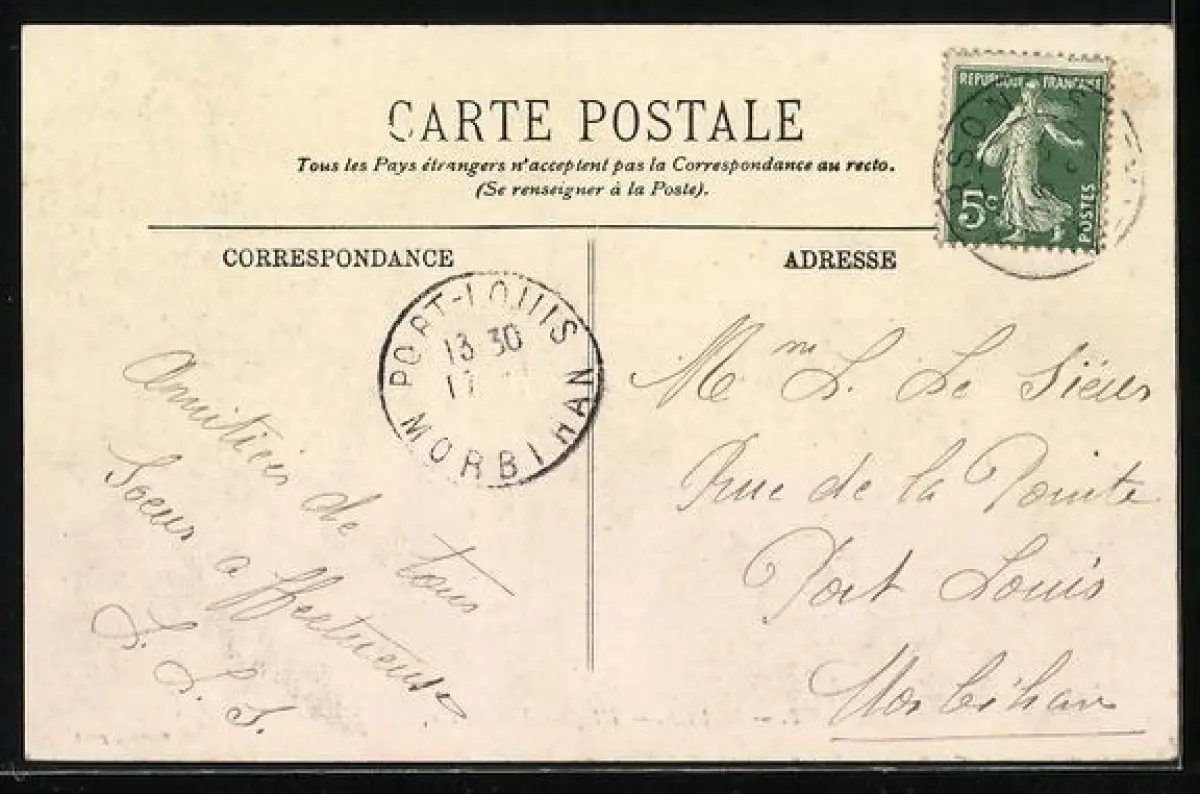 CARTE POSTALE
Tous les Pays étrangers n'acceptent pas la Correspondance au recto.
(Se renseigner à la Poste).
REPUBLIQUE FRANÇAISE
5c
POSTES
CORRESPONDANCE
ADRESSE
PORT-LOUIS
13 30
17
MORBIHAN
Amitiés de tous
Soeur affectueuse
L. L. S.
Mme L. Le Siéur
Rue de la Pointe
Port Louis
Morbihan